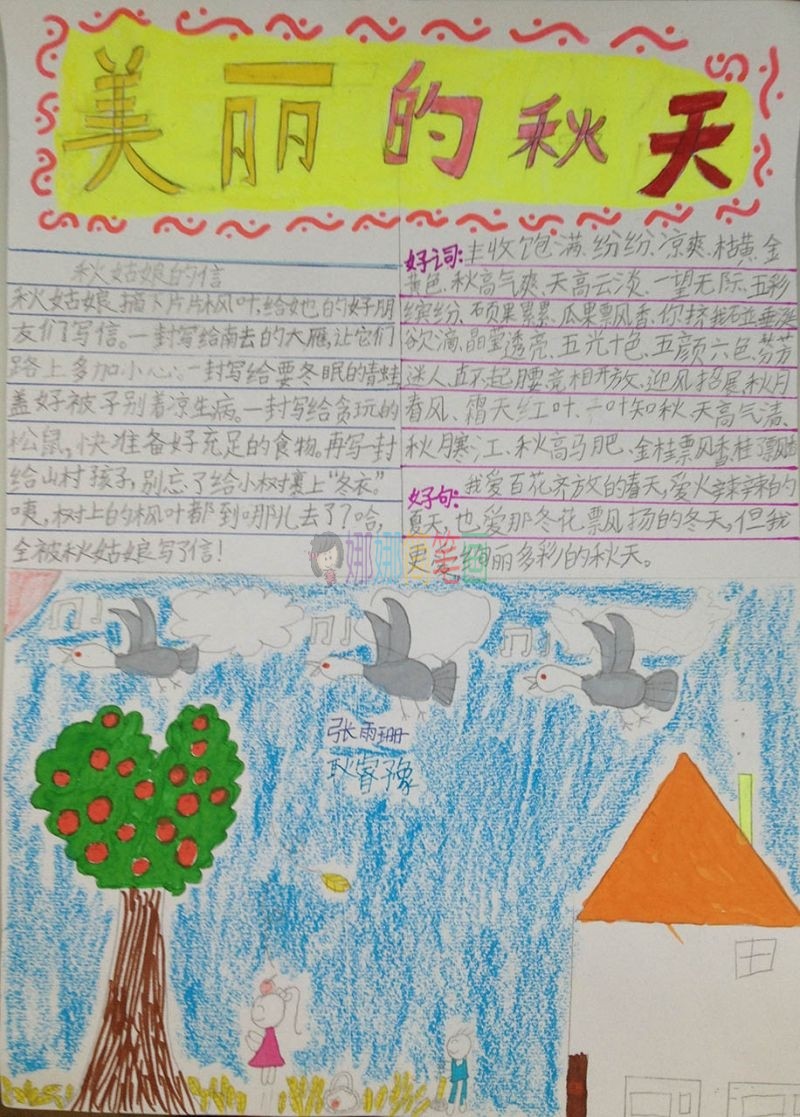 美丽的秋天
秋姑娘的信
秋姑娘摘下片片枫叶,给她的好朋
友们写信。一封写给南去的大雁,让它们
路上多加小心;一封写给要冬眠的青蛙
盖好被子别着凉生病。一封写给贪玩的
松鼠,快准备好充足的食物。再写一封
给山村孩子,别忘了给小树裹上“冬衣”。
咦,树上的枫叶都到哪儿去了?哈,
全被秋姑娘写了信!
好词:丰收、饱满、纷纷、凉爽、枯黄、金
黄色、秋高气爽、天高云淡、一望无际、五彩
缤纷、硕果累累、瓜果飘香、你挤我碰、垂涎
欲滴、晶莹透亮、五光十色、五颜六色、芬芳
迷人、直不起腰、竞相开放、迎风招展、秋月
春风、霜天红叶、一叶知秋、天高气清、
秋月寒江、秋高马肥、金桂飘香、桂子飘香
好句:我爱百花齐放的春天,爱火辣辣的
夏天,也爱那冬花飘扬的冬天,但我
更爱绚丽多彩的秋天。
张雨珊